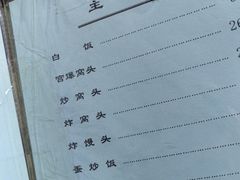 主
白饭
宫爆窝头
炒窝头
炸窝头
炸馒头
蛋炒饭